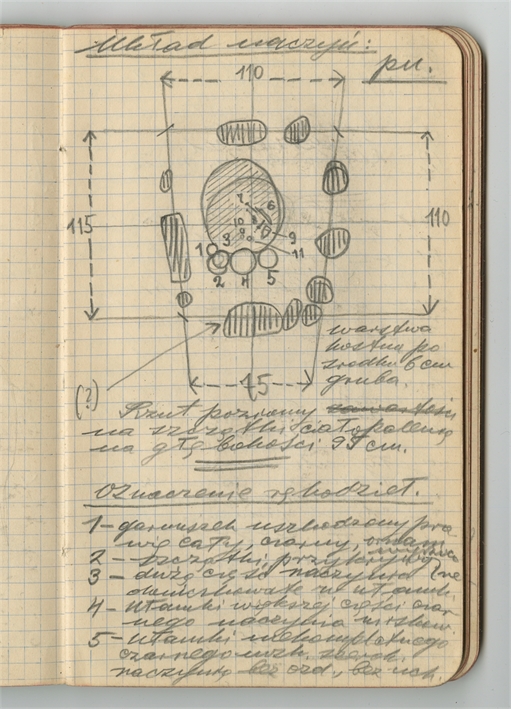 Układ naczyń:
pn.
110
115
110
7
6
10
8
3
9
1
11
2
4
5
warstwa
kostna po
środku 6 cm
gruba.
75
(?)
Rzut poziomy
na szczątki ciałopalenia
na głębokości 95 cm.
Oznaczenie rękodzieł.
1 – garnuszek uszkodzony pra
wie cały, czarny,
2 – szczątki
3 – dużą część naczynia
w ułamk.
4 – ułamki większej części czar-
nego naczynia
5 – ułamki niekompletnego
czarnego
naczynia bez ozd., bez uch.